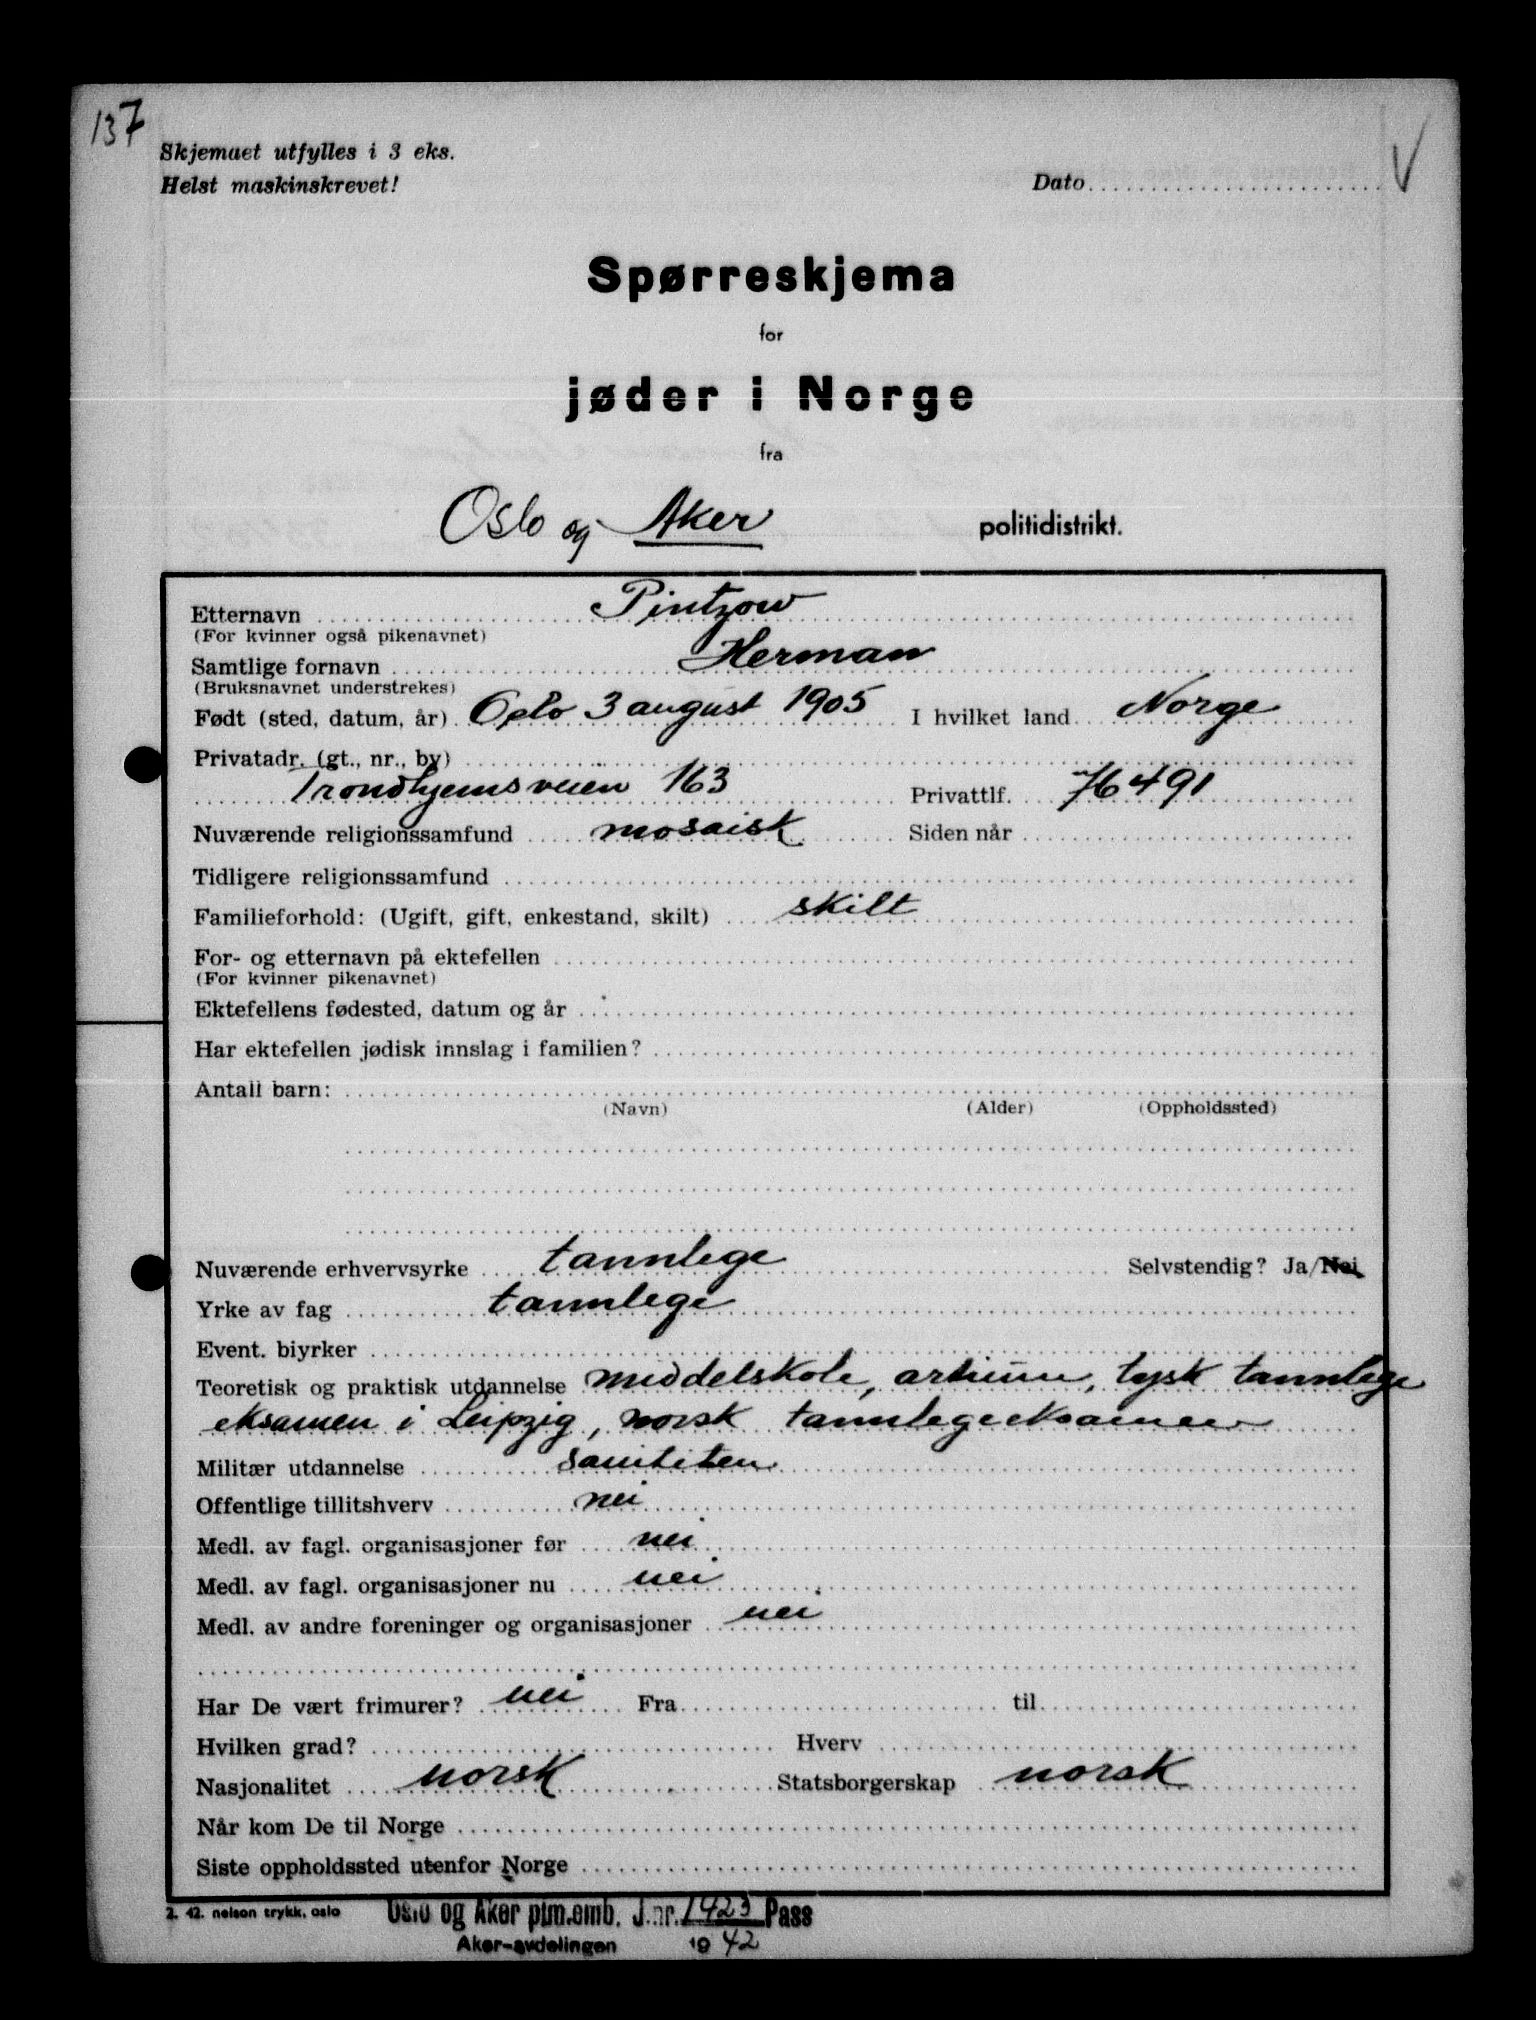 137
Skjemaet utfylles i 3 eks.
Helst maskinskrevet!
Dato V
Spørreskjema
for
jøder i Norge
fra
Oslo og Aker politidistrikt.
Etternavn Pintzow
(For kvinner også pikenavnet)
Samtlige fornavn Herman
(Bruksnavnet understrekes)
Født (sted, datum, år) Oslo 3 august 1905 I hvilket land Norge
Privatadr. (gt., nr., by)
Trondhjemsveien 163 Privattlf. 76491
Nuværende religionssamfund mosaisk Siden når
Tidligere religionssamfund
Familieforhold: (Ugift, gift, enkestand, skilt) skilt
For- og etternavn på ektefellen
(For kvinner pikenavnet)
Ektefellens fødested, datum og år
Har ektefellen jødisk innslag i familien?
Antall barn:
(Navn) (Alder) (Oppholdssted)
Nuværende erhvervsyrke tannlege Selvstendig? Ja/Nei
Yrke av fag tannlege
Event. biyrker
Teoretisk og praktisk utdannelse middelskole, artium, tysk tannlege
eksamen i Leipzig, norsk tannlegeeksamen
Militær utdannelse saniteten
Offentlige tillitshverv nei
Medl. av fagl. organisasjoner før nei
Medl. av fagl. organisasjoner nu nei
Medl. av andre foreninger og organisasjoner nei
Har De vært frimurer? nei Fra til
Hvilken grad? Hverv
Nasjonalitet norsk Statsborgerskap norsk
Når kom De til Norge
Siste oppholdssted utenfor Norge
2. 42. nelson trykk, oslo
Oslo og Aker plm.emb. J.nr. 1423 Pass
Aker-avdelingen 1942